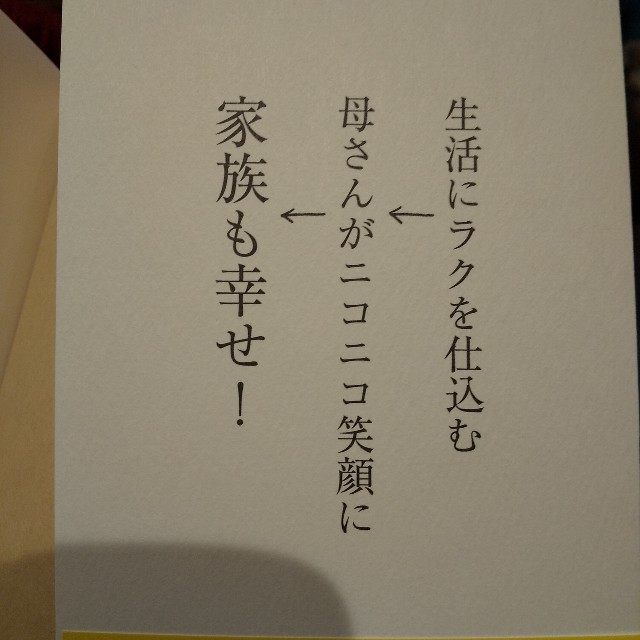 生活にラクを仕込む
←
母さんがニコニコ笑顔に
←
家族も幸せ！